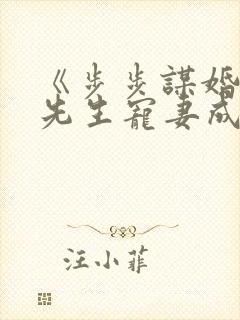 《步步謀婚
先生寵妻成
汪小菲